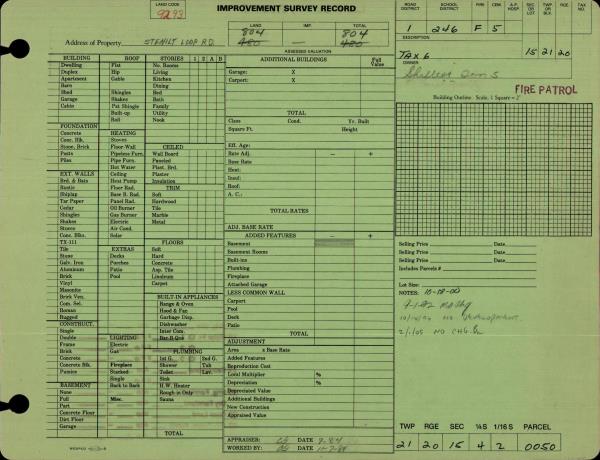 LAND CODE
9293
IMPROVEMENT SURVEY RECORD
ROAD DISTRICT
SCHOOL DISTRICT
FIRE
CEM.
A.P. HOSP.
SEC OR LOT
TWP OR BLK
RGE.
TAX NO.
LAND IMP. TOTAL
804 804
480 — 480
1 246 F 5
Address of Property STENLT LOOP RD.
ASSESSED VALUATION
DESCRIPTION
TAX 6 15 21 20
OWNER
FIRE PATROL
Building Outline: Scale, 1 Square =
BUILDING
Dwelling
Duplex
Apartment
Barn
Shed
Garage
Cable
FOUNDATION
Concrete
Conc. Blk.
Stone, Brick
Posts
Piles
EXT. WALLS
Brd. & Bats
Rustic
Shiplap
Tar Paper
Cedar
Shingles
Shakes
Stucco
Conc. Blks.
TX-111
Tile
Stone
Galv. Iron
Aluminum
Brick
Vinyl
Masonite
Brick Ven.
Com. Sel.
Roman
Rugged
CONSTRUCT.
Single
Double
Frame
Brick
Concrete
Concrete Blk.
Pumice
BASEMENT
None
Full
Part
Concrete Floor
Dirt Floor
Garage
ROOF
Flat
Hip
Cable
Shingles
Shakes
Pat Shingle
Built-up
Roll
HEATING
Stoves
Floor-Wall
Pipeless Furn.
Pipe Furn.
Hot Water
Ceiling
Heat Pump
Floor Rad.
Base B. Rad.
Panel Rad.
Oil Burner
Gas Burner
Electric
Air Cond.
Solar
EXTRAS
Decks
Porches
Patio
Pool
LIGHTING
Electric
Gas
Fireplace
Stacked
Single
Back to Back
Misc.
STORIES 1 2 A B
No. Rooms
Living
Kitchen
Dining
Bed
Bath
Family
Utility
Nook
CEILED
Wall Board
Paneled
Plast. Brd.
Plaster
Insulation
TRIM
Soft
Hardwood
Tile
Marble
Metal
FLOORS
Soft
Hard
Concrete
Asp. Tile
Linoleum
Carpet
BUILT-IN APPLIANCES
Range & Oven
Hood & Fan
Garbage Disp.
Dishwasher
Inter Com.
Bar-B-Que
PLUMBING
1st G. 2nd G.
Shower Tub
Toilet Lav.
Sink
H.W. Heater
Rough in Only
Sauna
TOTAL
ADDITIONAL BUILDINGS Full Value
Garage: X
Carport: X
TOTAL
Class Cond. Yr. Built
Square Ft. Height
Eff. Age:
Rate Adj. – +
Base Rate
Heat:
Insul:
Roof:
A. C.:
TOTAL RATES
ADJ. BASE RATE
ADDED FEATURES – +
Basement
Basement Rooms
Built-ins
Plumbing
Fireplace
Attached Garage
LESS COMMON WALL
Carport
Pool
Deck
Patio
TOTAL
ADJUSTMENT
Area x Base Rate
Added Features
Reproduction Cost
Local Multiplier %
Depreciation %
Depreciated Value
Additional Buildings
New Construction
Appraised Value
APPRAISER: DATE 9-84
WORKED BY: DATE
Selling Price Date
Selling Price Date
Selling Price Date
Includes Parcels #
Lot Size:
NOTES: 10-18-00
2/1/05 NO CHG.
TWP RGE SEC ¼S 1/16 S PARCEL
21 20 15 4 2 0050